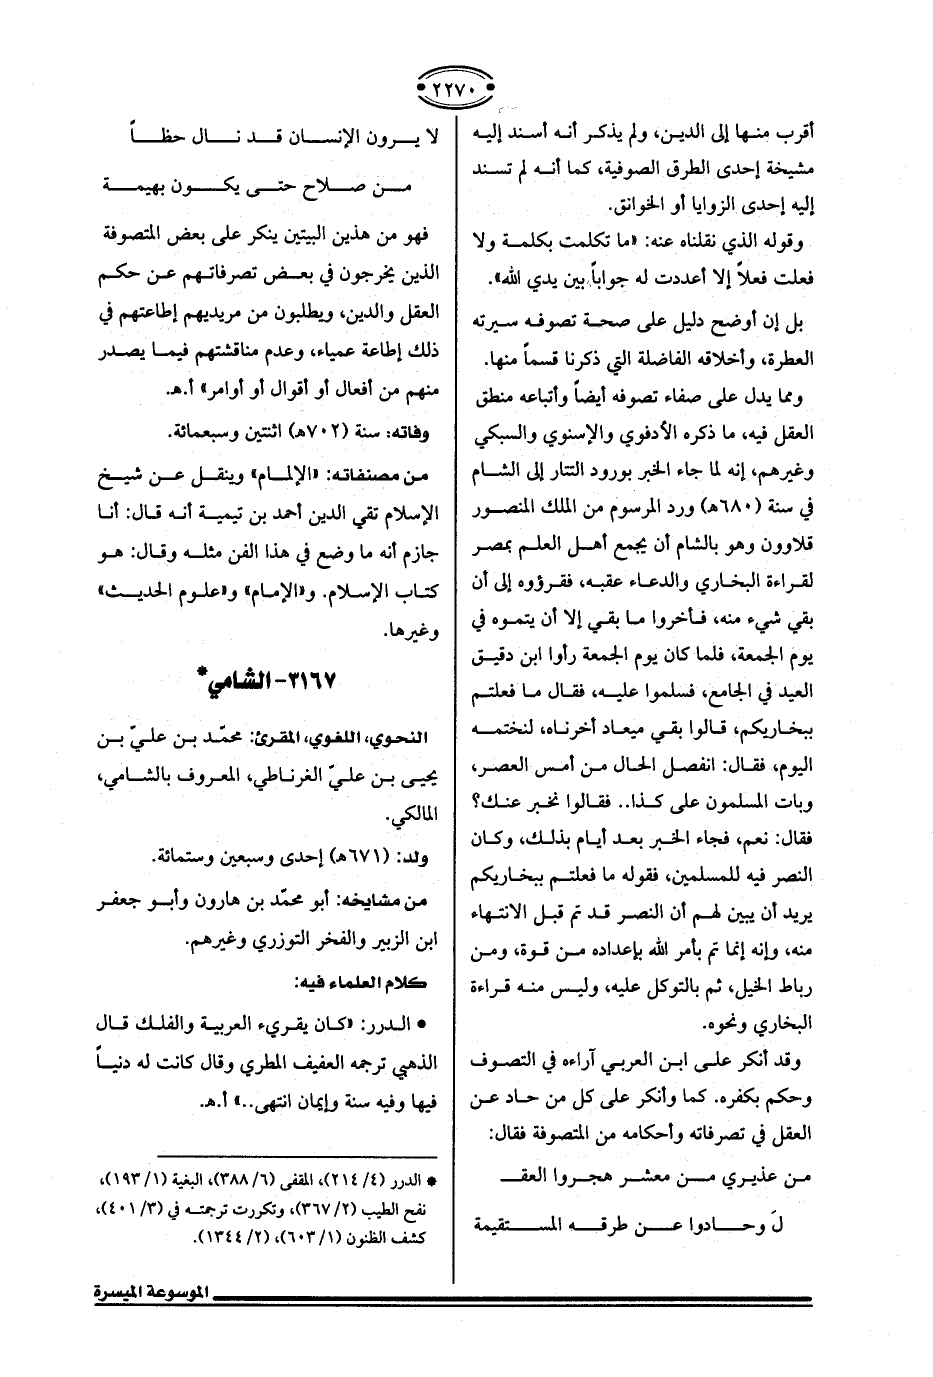 ٢٢٧٠
أقرب منها إلى الدين، ولم يذكر أنه أسند إليه
مشيخة إحدى الطرق الصوفية، كما أنه لم تسند
إليه إحدى الزوايا أو الخوانق.
وقوله الذي نقلناه عنه: «ما تكلمت بكلمة ولا
فعلت فعلاً إلا أعددت له جواباً بين يدي الله».
بل إن أوضح دليل على صحة تصوفه سيرته
العطرة، وأخلاقه الفاضلة التي ذكرنا قسماً منها.
ومما يدل على صفاء تصوفه أيضاً وأتباعه منطق
العقل فيه، ما ذكره الأدفوي والإسنوي والسبكي
وغيرهم، إنه لما جاء الخبر بورود التتار إلى الشام
في سنة (٦٨٠هـ) ورد المرسوم من الملك المنصور
قلاوون وهو بالشام أن يجمع أهل العلم بمصر
لقراءة البخاري والدعاء عقبه، فقرؤوه إلى أن
بقي شيء منه، فأخروا ما بقي إلا أن يتموه في
يوم الجمعة، فلما كان يوم الجمعة رأوا ابن دقيق
العيد في الجامع، فسلموا عليه، فقال ما فعلتم
ببخاريكم، قالوا بقي ميعاد أخرناه، لنختمه
اليوم، فقال: انفصل الحال من أمس العصر،
وبات المسلمون على كذا.. فقالوا نخبر عنك؟
فقال: نعم، فجاء الخبر بعد أيام بذلك، وكان
النصر فيه للمسلمين، فقوله ما فعلتم ببخاريكم
يريد أن يبين لهم أن النصر قد تم قبل الانتهاء
منه، وإنه إنما تم بأمر الله بإعداده من قوة، ومن
رباط الخيل، ثم بالتوكل عليه، وليس منه قراءة
البخاري ونحوه.
وقد أنكر على ابن العربي آراءه في التصوف
وحكم بكفره. كما وأنكر على كل من حاد عن
العقل في تصرفاته وأحكامه من المتصوفة فقال:
من عذيري من معشر هجروا العقـ
لَ وحادوا عن طرقه المستقيمة
لا يرون الإنسان قد نال حظاً
من صلاح حتى يكون بهيمة
فهو من هذين البيتين ينكر على بعض المتصوفة
الذين يخرجون في بعض تصرفاتهم عن حكم
العقل والدين، ويطلبون من مريديهم إطاعتهم في
ذلك إطاعة عمياء، وعدم مناقشتهم فيما يصدر
منهم من أفعال أو أقوال أو أوامر» أ.هـ.
وفاته: سنة (٧٠٢هـ) اثنتين وسبعمائة.
من مصنفاته: «الإلمام» وينقل عن شيخ
الإسلام تقي الدين أحمد بن تيمية أنه قال: أنا
جازم أنه ما وضع في هذا الفن مثله وقال: هو
كتاب الإسلام. و«الإمام» و«علوم الحديث»
وغيرها.
٣١٦٧- الشامي*
النحوي، اللغوي، المقرئ: محمّد بن عليّ بن
يحيى بن عليّ الغرناطي، المعروف بالشامي،
المالكي.
ولد: (٦٧١هـ) إحدى وسبعين وستمائة.
من مشايخه: أبو محمّد بن هارون وأبو جعفر
ابن الزبير والفخر التوزري وغيرهم.
كلام العلماء فيه:
• الدرر: «كان يقريء العربية والفلك قال
الذهبي ترجمه العفيف المطري وقال كانت له دنياً
فيها وفيه سنة وإيمان انتهى..» أ.هـ.
* الدرر (٤/ ٢١٤)، المقفى (٦/ ٣٨٨)، البغية (١/ ١٩٣)،
نفح الطيب (٢/ ٣٦٧)، وتكررت ترجمته في (٣/ ٤٠١)،
كشف الظنون (١/ ٦٠٣)، (٢/ ١٣٤٤).
الموسوعة الميسرة